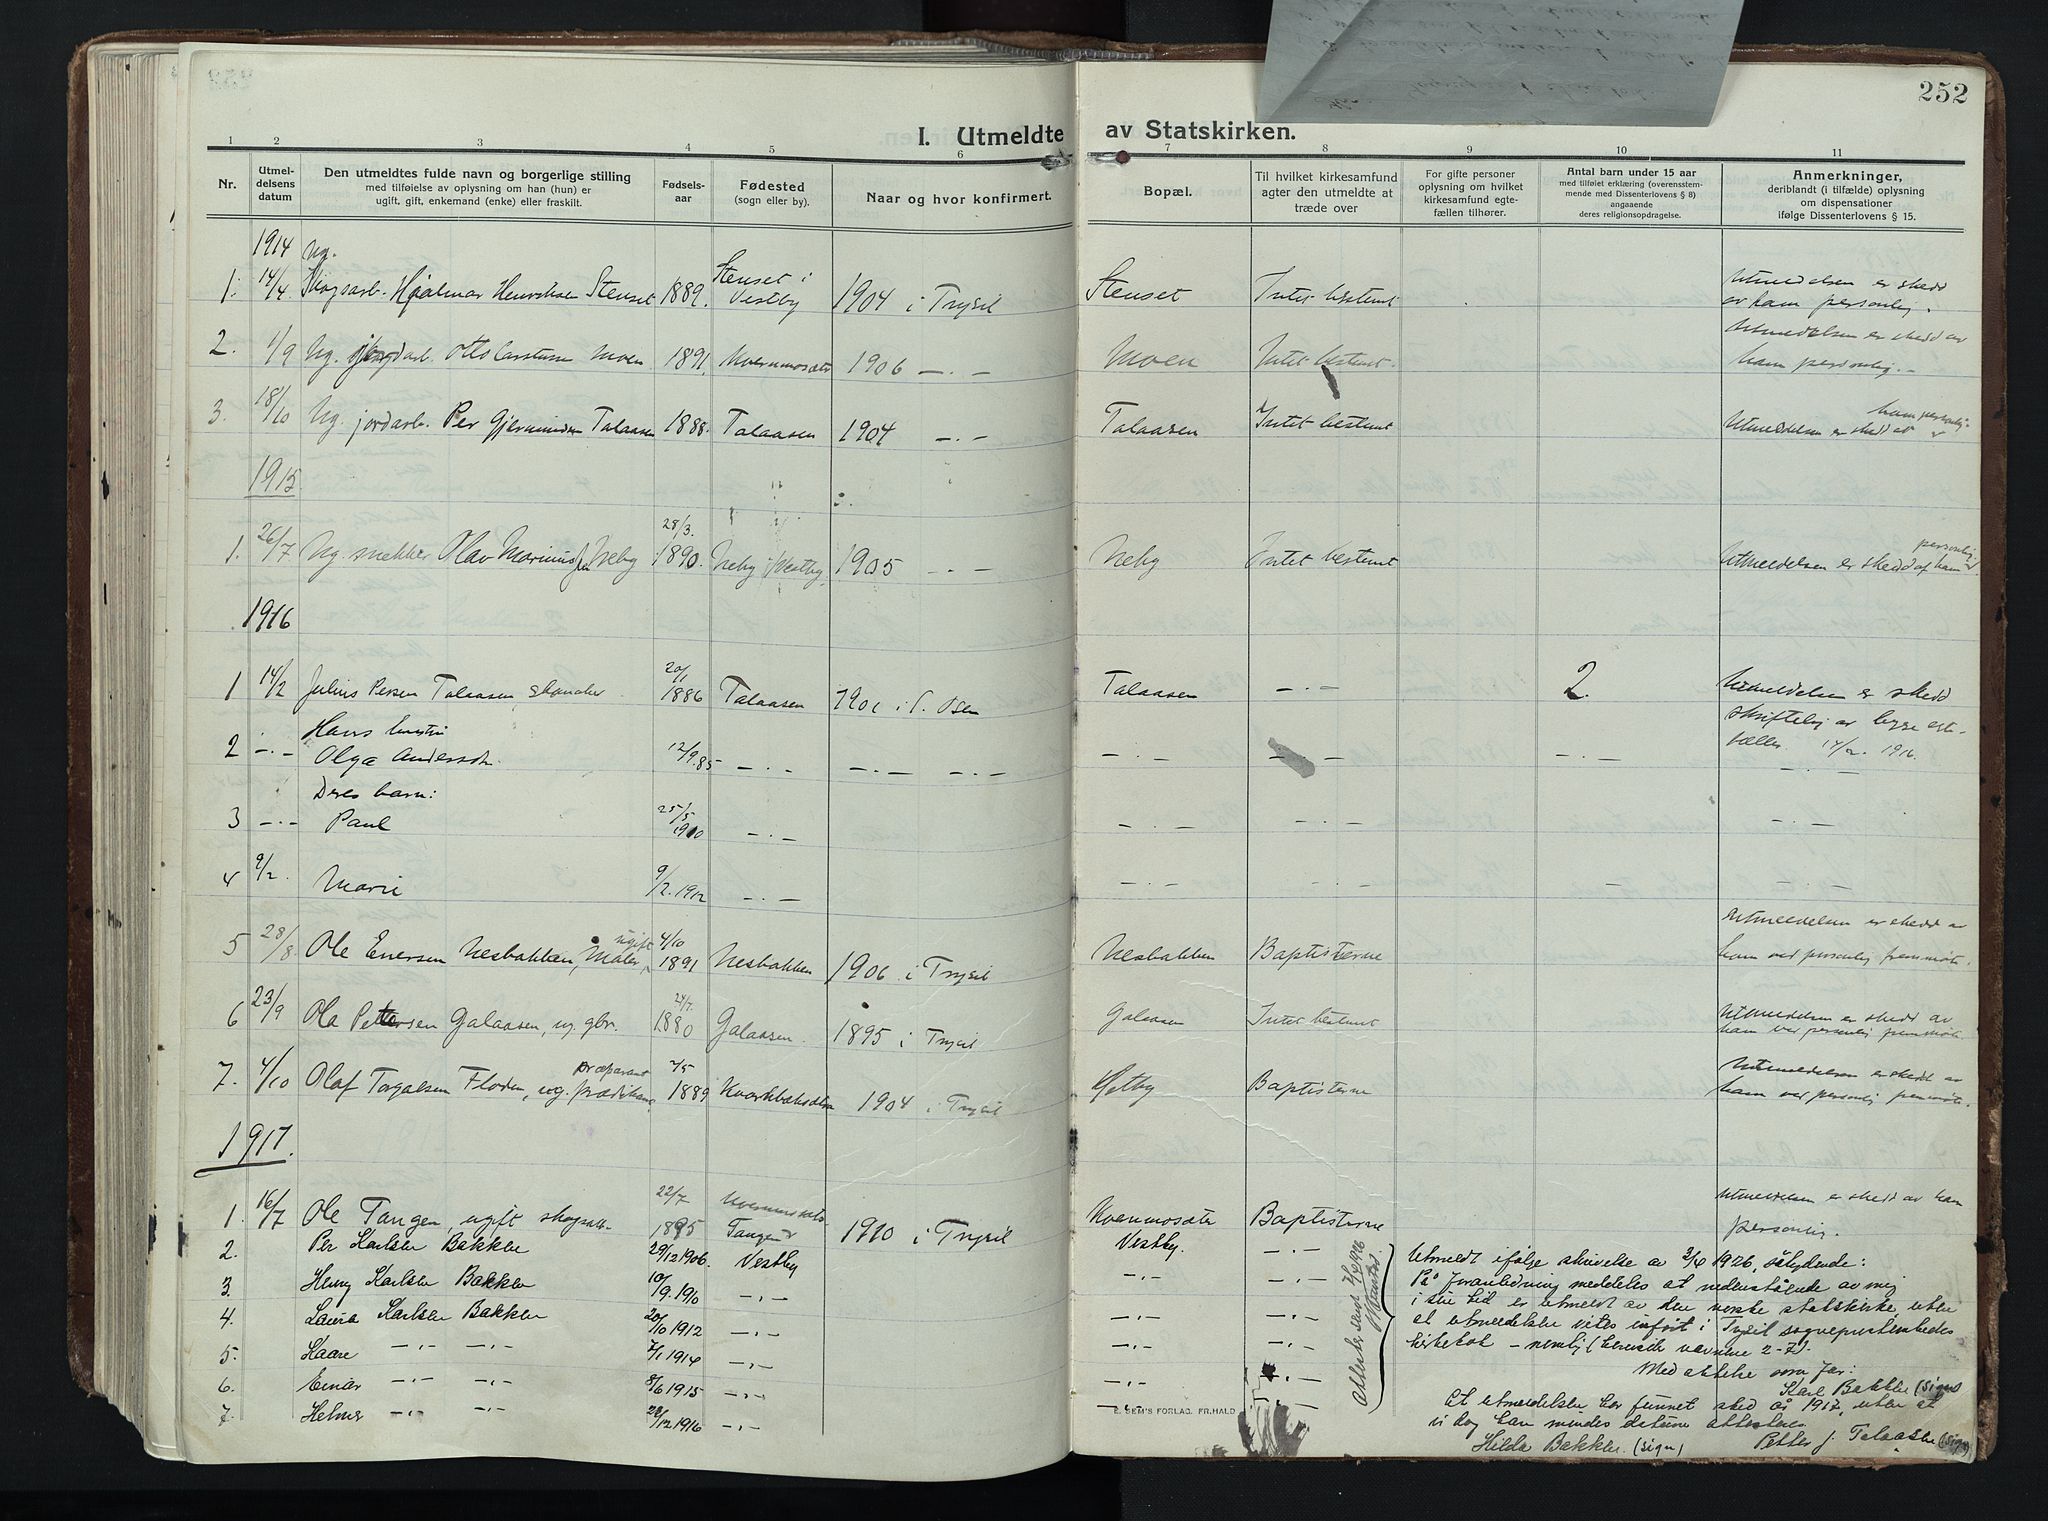 252
I. Utmeldte av Statskirken.
1 2 3 4 5 6 7 8 9 10 11
Nr.
Utmel-
delsens
datum
Den utmeldtes fulde navn og borgerlige stilling
med tilføielse av oplysning om han (hun) er
ugift, gift, enkemand (enke) eller fraskilt.
Fødsels-
aar
Fødested
(sogn eller by).
Naar og hvor konfirmert.
Bopæl.
Til hvilket kirkesamfund
agter den utmeldte at
træde over
For gifte personer
oplysning om hvilket
kirkesamfund egte-
fællen tilhører.
Antal barn under 15 aar
med tilføiet erklæring (overensstem-
mende med Dissenterlovens § 8)
angaaende
deres religionsopdragelse.
Anmerkninger,
deriblandt (i tilfælde) oplysning
om dispensationer
ifølge Dissenterlovens § 15.
1914 Ug.
1. 14/4 Skogsarb. Hjalmar Henriksen Stenset 1889. Stenset i Vestby 1904 i Trysil Stenset Intet bestemt Utmeldelsen er skedd
av ham personlig.
2. 1/9 Ug. jordarb. Otto Carstensen Moen 1891. Kvernmosæter 1906 — . — Moen Intet bestemt. Utmeldelsen er skedd av
ham personlig. —
3. 18/10 Ug. jordarb. Per Gjermundsen Talaasen 1888. Talaasen 1904 — . — Talaasen Intet bestemt Utmeldelsen er skedd af ham personlig.
1915
1. 26/7 Ug. snekker Olav Marinius Neby 28/3. 1890. Neby i Vestby, 1905 — . — Neby Intet bestemt Utmeldelsen er skedd af ham personlig.
1916
1 14/2 Julius Persen Talaasen 20/1 1886 Talaasen i Osen Talaasen — . — 2. Utmeldelsen er skedd
skriftelig av begge egte-
fæller 14/2. 1916.
Hans hustru
2 — . — Olga Andersdtr. 12/9.85 — . — — . — — . — — . — — . — — . — — . —
Deres barn:
3 — . — Paul 25/5 1910 — . — — . — — . — — . —
4 9/2. Marie 9/2.1912 — . — — . — — . — — — . —
5 28/8 Ole Enersen Nesbakken, Maler, ugift 4/10 1891 Nesbakken 1906 i Trysil Nesbakken Baptisterne Utmeldelsen er skedd av
ham ved personlig fremmøte.
6 23/9 Ola Pettersen Galaasen, ug. gbr. 24/7. 1880 Galaasen. 1895 i Trysil Galaasen Intet bestemt Utmeldelsen er skedd av
ham ved personlig fremmøte.
7. 4/10 Olaf Torgalsen Floden, ug. prædikant 2/5 1889 1904 i Trysil Baptisterne Utmeldelsen er skedt av
ham ved personlig fremmøte.
1917.
1. 16/7 Ole Tangen, ugift skogsarb. 22/7 1895 Tangen 1910 i Trysil Kvenmosæter Baptisterne Utmeldelsen er skedd av ham
personlig.
2. Per Karlsen Bakken 29/12 1906. Vestby Vestby. — . —
3. Henry Karlsen Bakken 10/9. 1910 — . — — . — — . —
4. Laura Karlsen Bakken 20/10 1912 — . — — . — — . —
5. Kaare — . — — . — 7/1 1914 — . — — . — — . —
6. Einar — . — — . — 8/6 1915 — . — — . — — . —
7. Helmer — . — — . — 28/12 1916 — . — — . —
Utmeldt ifølge skrivelse av 3/4 1926, sålydende:
På foranledning meddeles at nedenstående av mig
i sin tid er utmeldt av den norske statskirke, uten
at utmeldelsen vites inført i Trysil sogneprestembedes
kirkebok — nemlig (herunder navnene 2-7).
Med aktelse som far:
Karl Bakken (sign)
At utmeldelse har funnet sted år 1917, uten at
vi dog kan mindes datoen attesteres
Hilda Bakken. (sign) Petter J. Talaasen (sign)
E. SEM'S FORLAG, FR.HALD